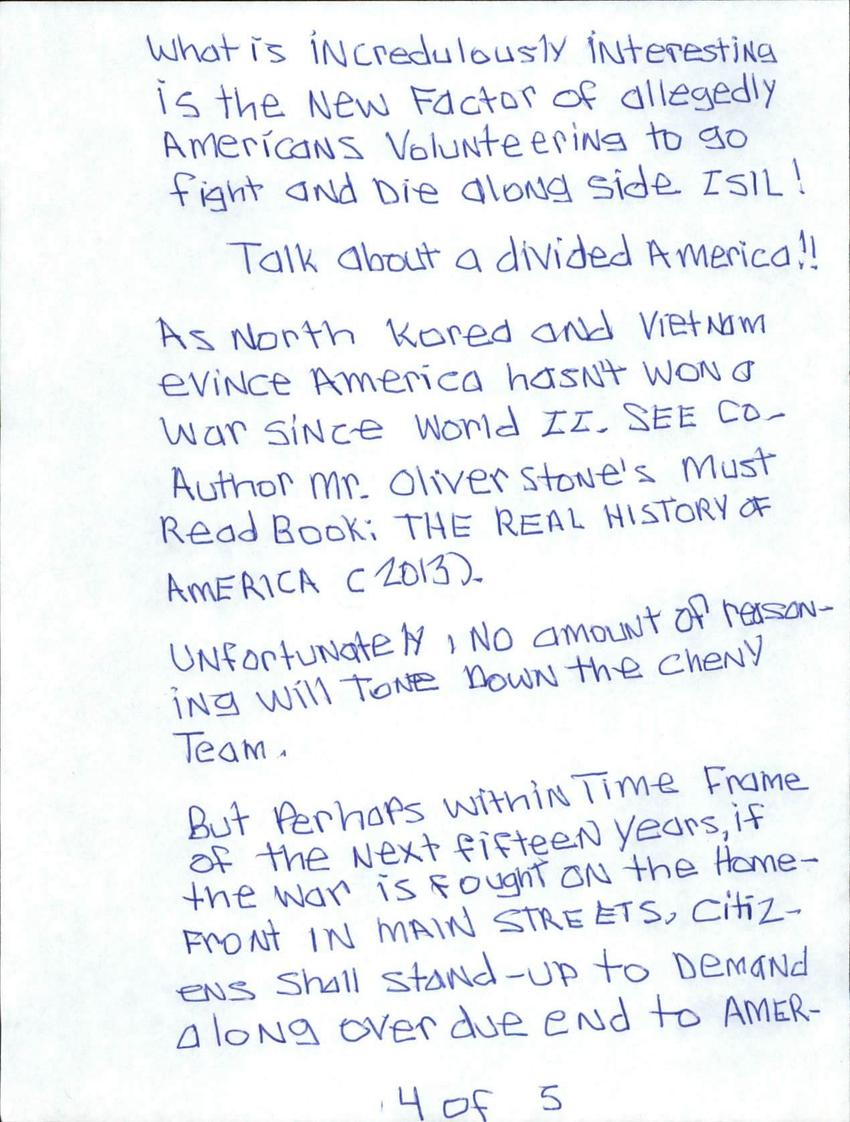 What is incredulously interesting
is the New Factor of allegedly
Americans Volunteering to go
fight and Die along side ISIL!
Talk about a divided America!!
As North Korea and Vietnam
evince America hasn't won a
war since World II. SEE Co-
Author Mr. Oliver Stone's Must
Read Book: THE REAL HISTORY OF
AMERICA (2013).
Unfortunately, No amount of reason-
ing will Tone Down the Cheny
Team.
But Perhaps within Time Frame
of the Next fifteen years, if
the war is fought on the Home-
FRONT IN MAIN STREETS, Citiz-
ens shall stand-up to Demand
along over due end to AMER-
4 of 5